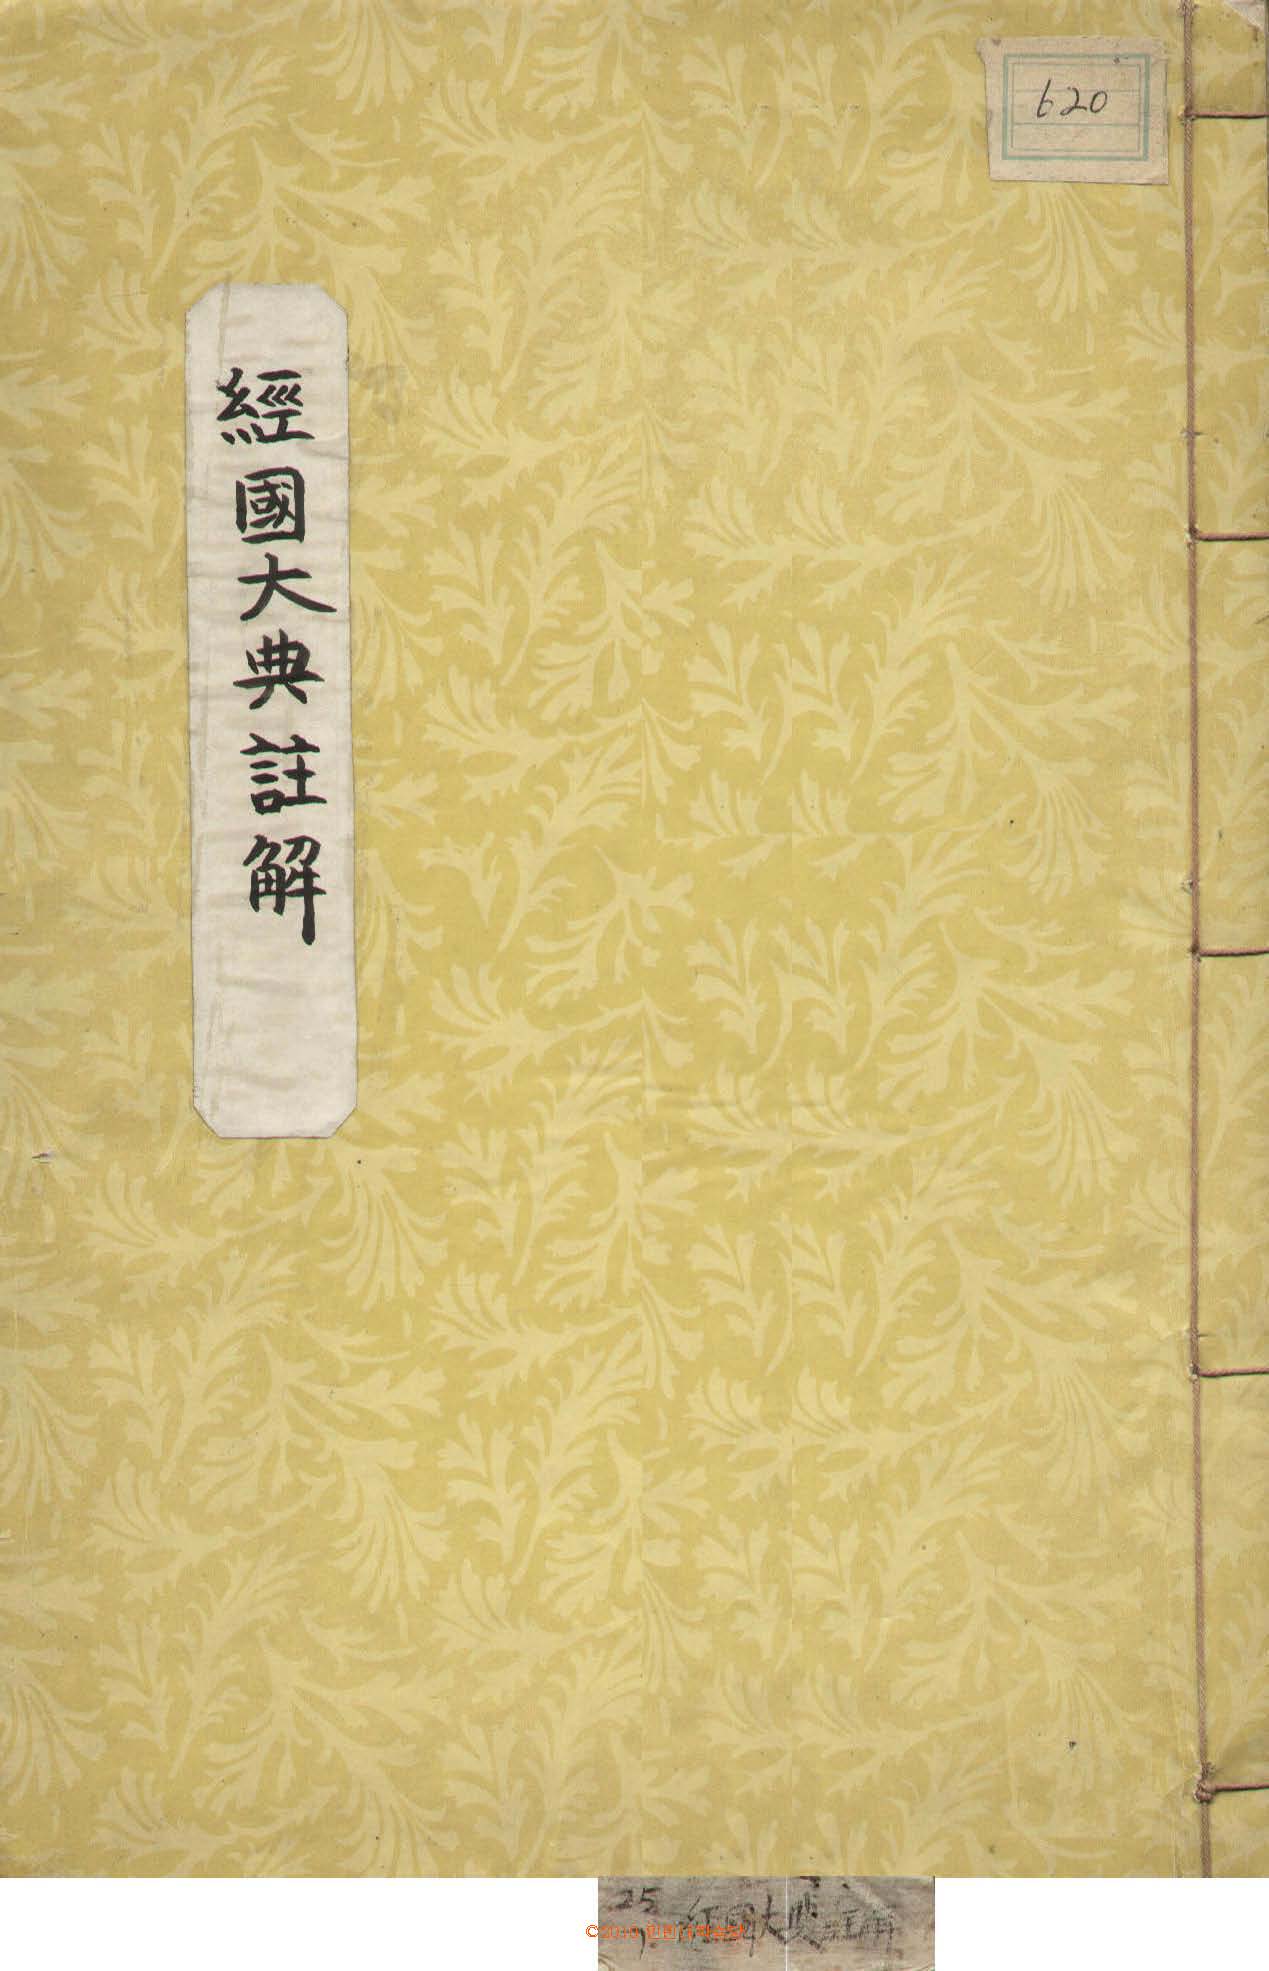 620
經國大典註解
25 經國大典註解